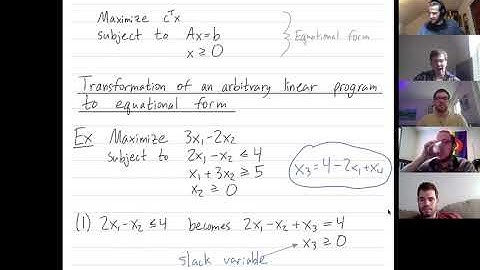 Maximize cᵀx
subject to Ax=b
x ≥ 0
Equational form
Transformation of an arbitrary linear program
to equational form
Ex Maximize 3x₁-2x₂
subject to 2x₁-x₂ ≤ 4
x₁+3x₂ ≥ 5
x₂ ≥ 0
x₃=4-2x₁+x₂
(1) 2x₁-x₂ ≤ 4 becomes 2x₁-x₂+x₃=4
x₃ ≥ 0
slack variable